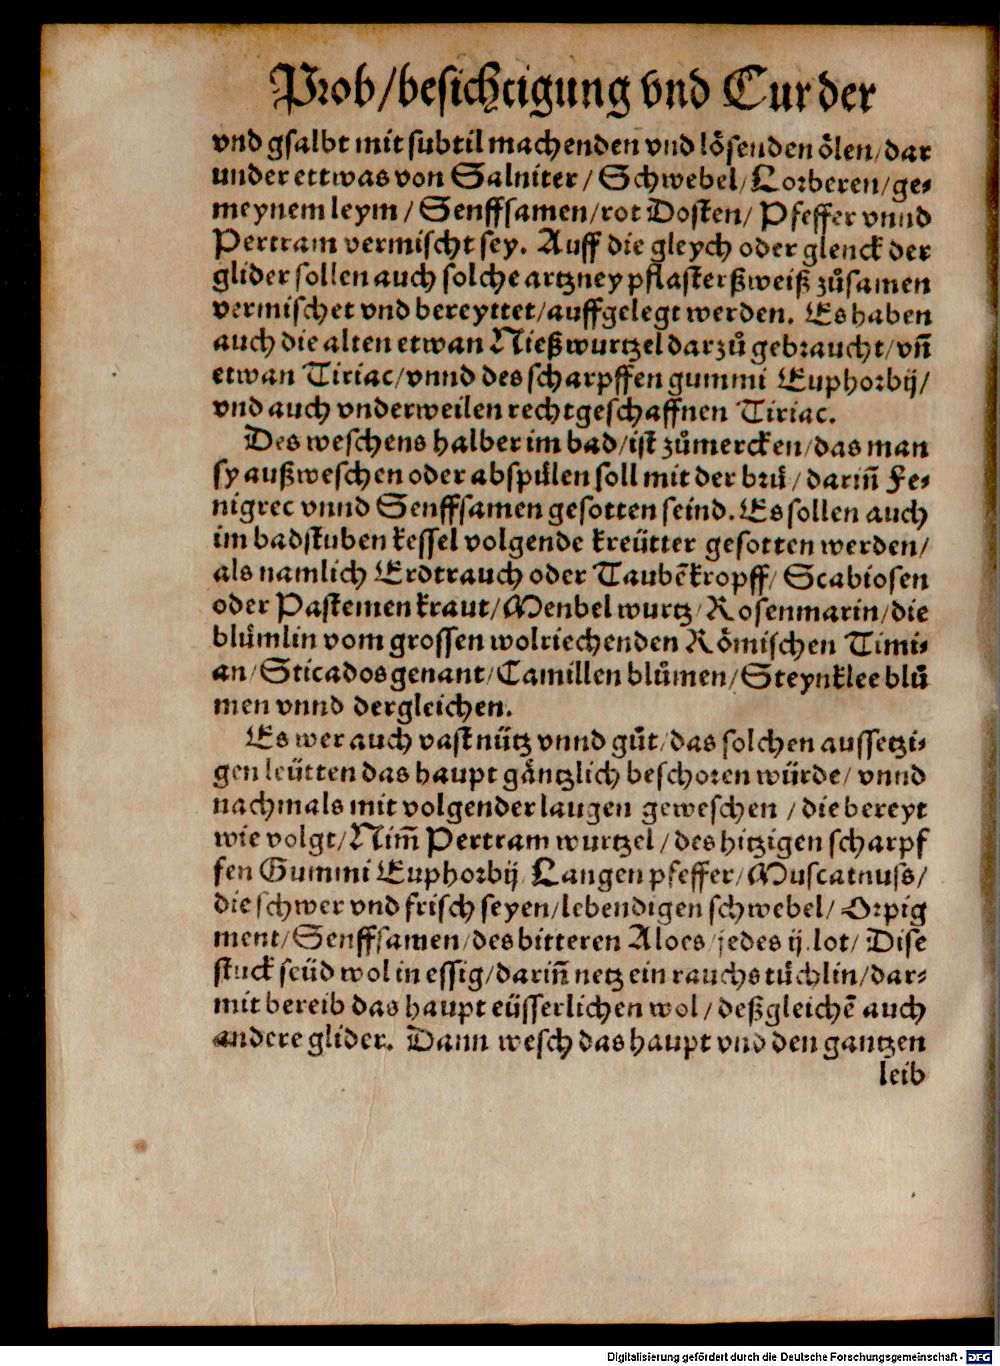 Prob/besichtigung vnd Cur der
vnd gsalbt mit subtil machenden vnd lösenden ölen/dar
under ettwas von Salniter/Schwebel/Lorberen/ge⸗
meynem leym/Senffsamen/rot Dosten/Pfeffer vnnd
Pertram vermischt sey. Auff die gleych oder glenck der
glider sollen auch solche artzney pflasterßweiß zůsamen
vermischet vnd bereyttet/auffgelegt werden. Es haben
auch die alten etwan Nießwurtzel darzů gebraucht/vñ
etwan Tiriac/vnnd des scharpffen gummi Euphorbij/
vnd auch vnderweilen rechtgeschaffnen Tiriac.
Des weschens halber im bad/ist zůmercken/das man
sy außweschen oder abspuͤlen soll mit der bruͤ/dariñ Fe⸗
nigrec vnnd Senffsamen gesotten seind. Es sollen auch
im badstuben kessel volgende kreütter gesotten werden/
als namlich Erdtrauch oder Taubẽkropff/Scabiosen
oder Pastemen kraut/Menbel wurtz/Rosenmarin/die
bluͤmlin vom grossen wolriechenden Römischen Timi⸗
an/Sticados genant/Camillen bluͤmen/Steynklee bluͤ
men vnnd dergleichen.
Es wer auch vast nütz vnnd gůt/das solchen aussetzi⸗
gen leütten das haupt gäntzlich beschoren würde/vnnd
nachmals mit volgender laugen geweschen/die bereyt
wie volgt/Nim̃ Pertram wurtzel/des hitzigen scharpf
fen Gummi Euphorbij/Langen pfeffer/Muscatnuss/
die schwer vnd frisch seyen/lebendigen schwebel/Orpig
ment/Senffsamen/des bitteren Aloes/jedes ij.lot/Dise
stuck seüd wol in essig/dariñ netz ein rauchs tuͤchlin/dar⸗
mit bereib das haupt eüsserlichen wol/deßgleichẽ auch
andere glider. Dann wesch das haupt vnd den gantzen
leib
Digitalisierung gefördert durch die Deutsche Forschungsgemeinschaft - DFG